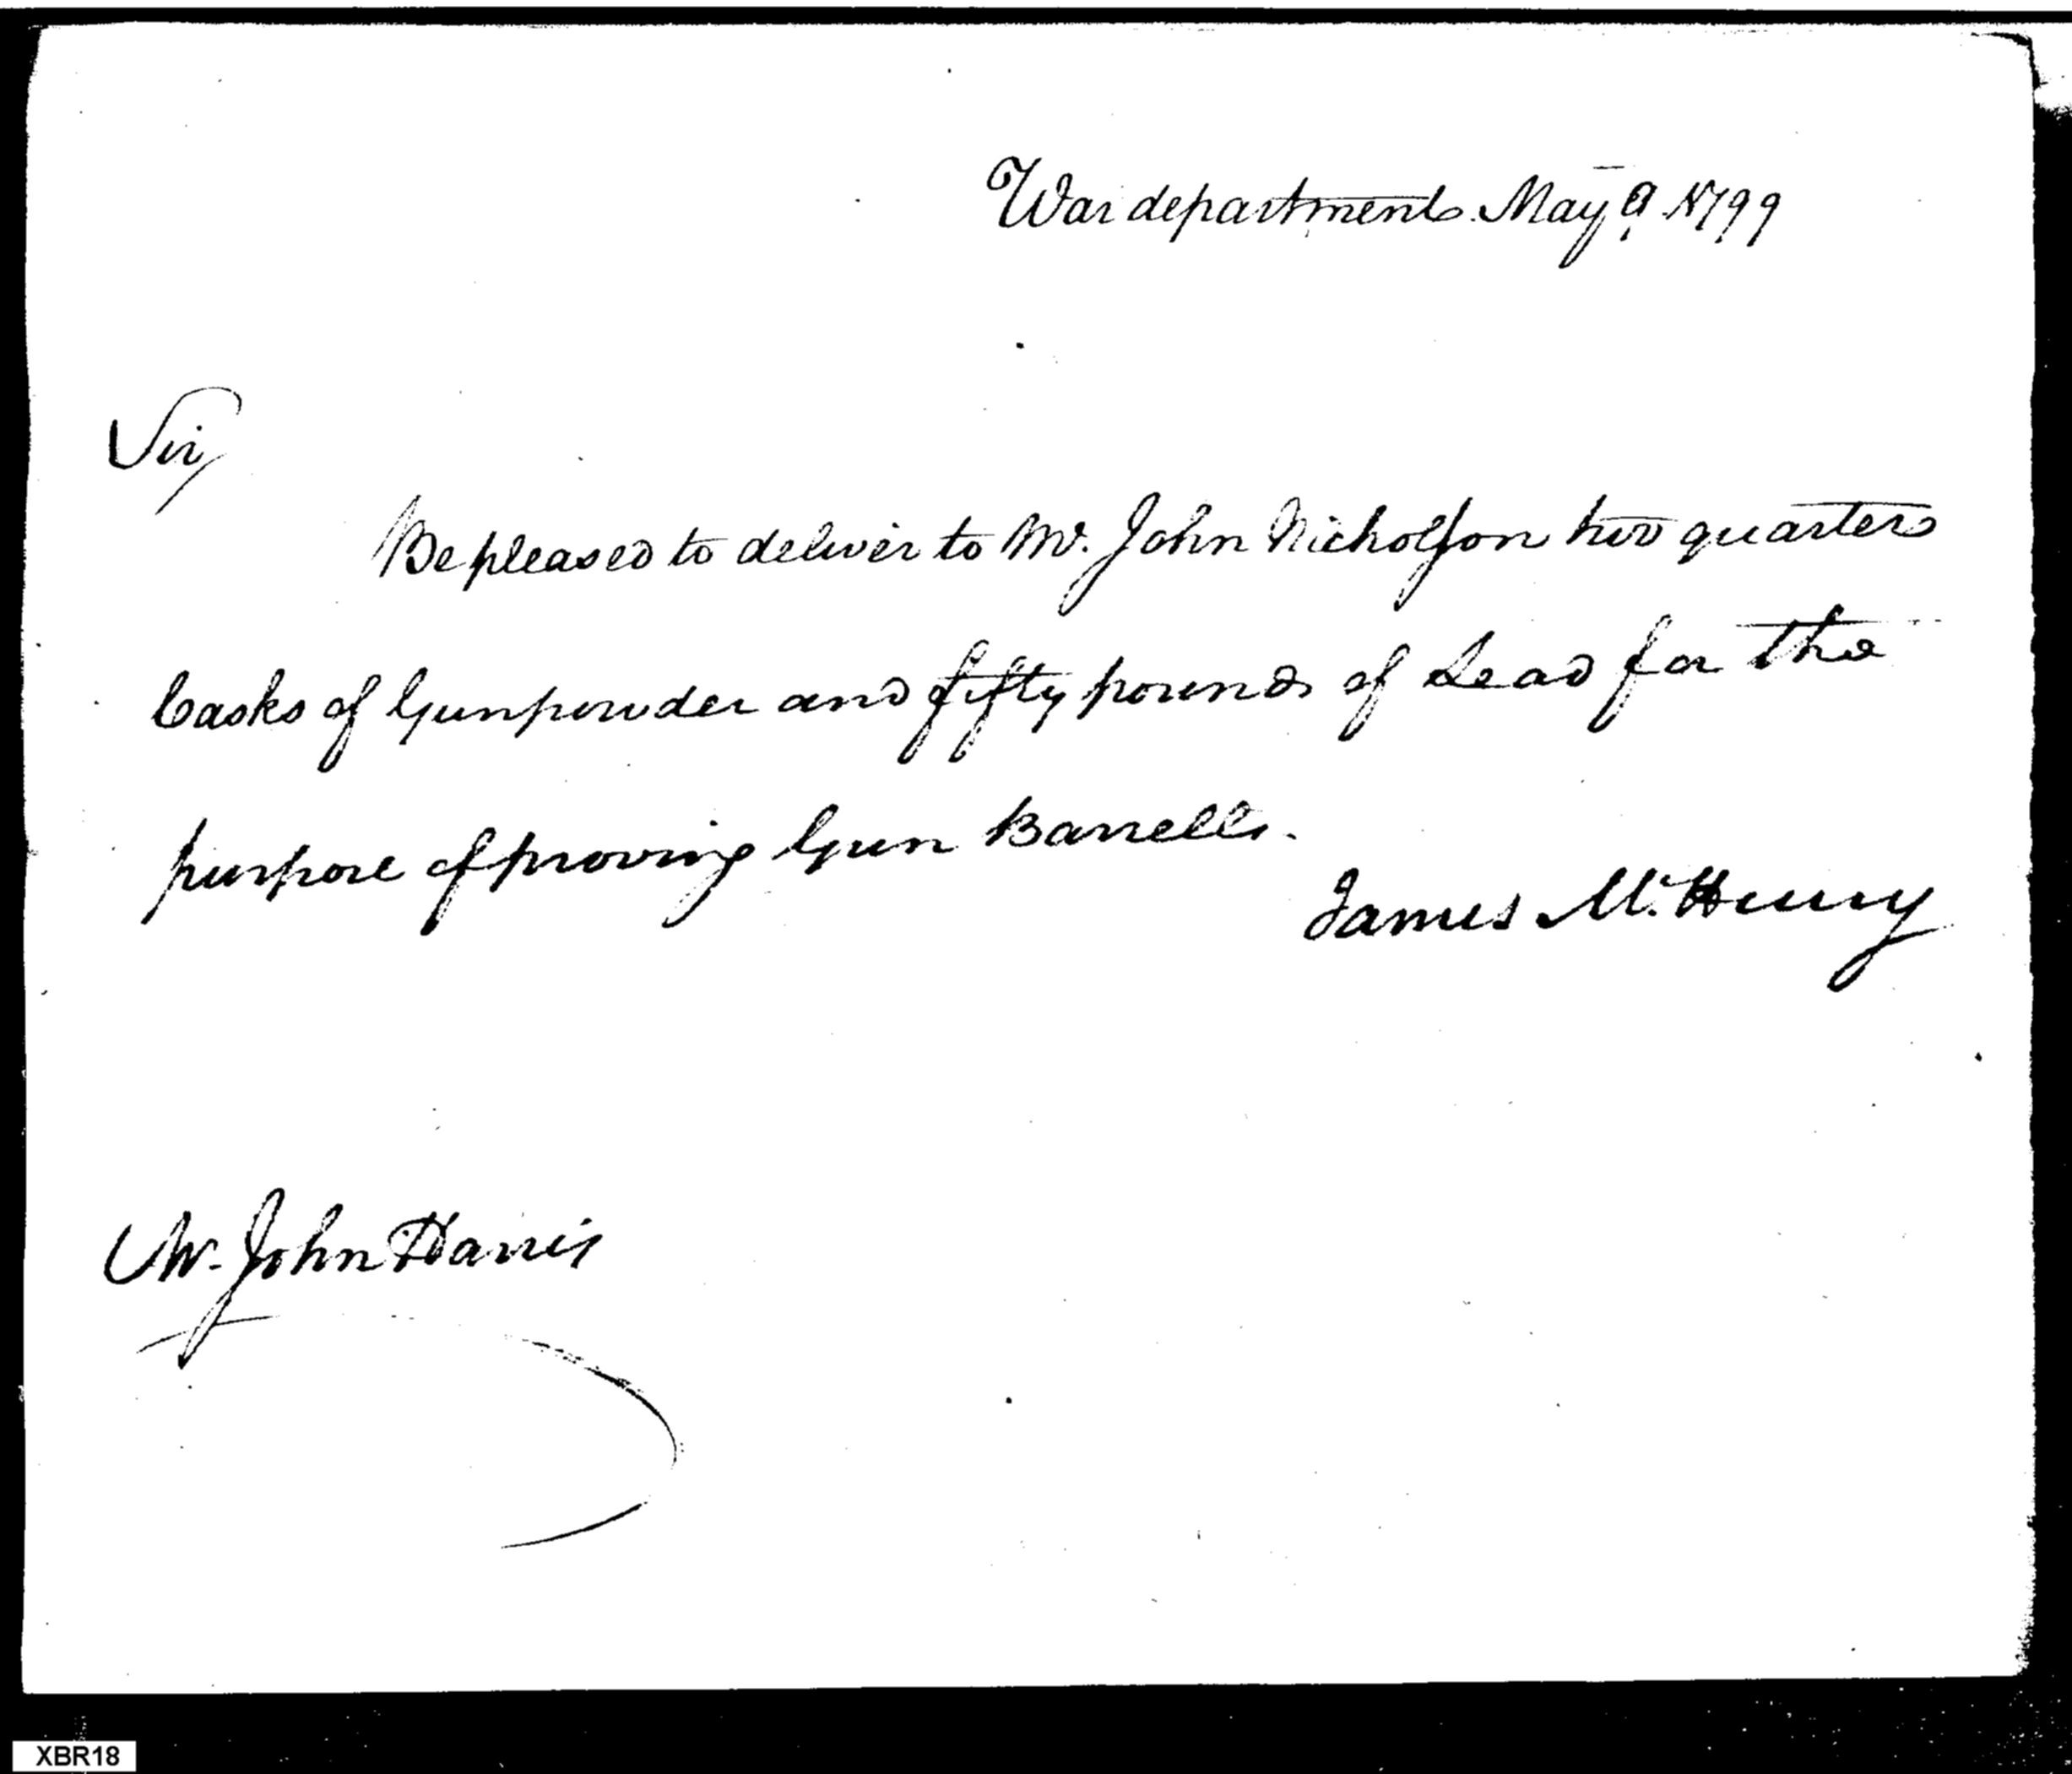 War department May 9. 1799
Sir,
Be pleased to deliver to Mr. John Nicholson two quarter
Casks of Gunpowder and fifty pounds of Lead for the
purpose of proving Gun Barrells.
James McHenry
Mr. John Harris
XBR18